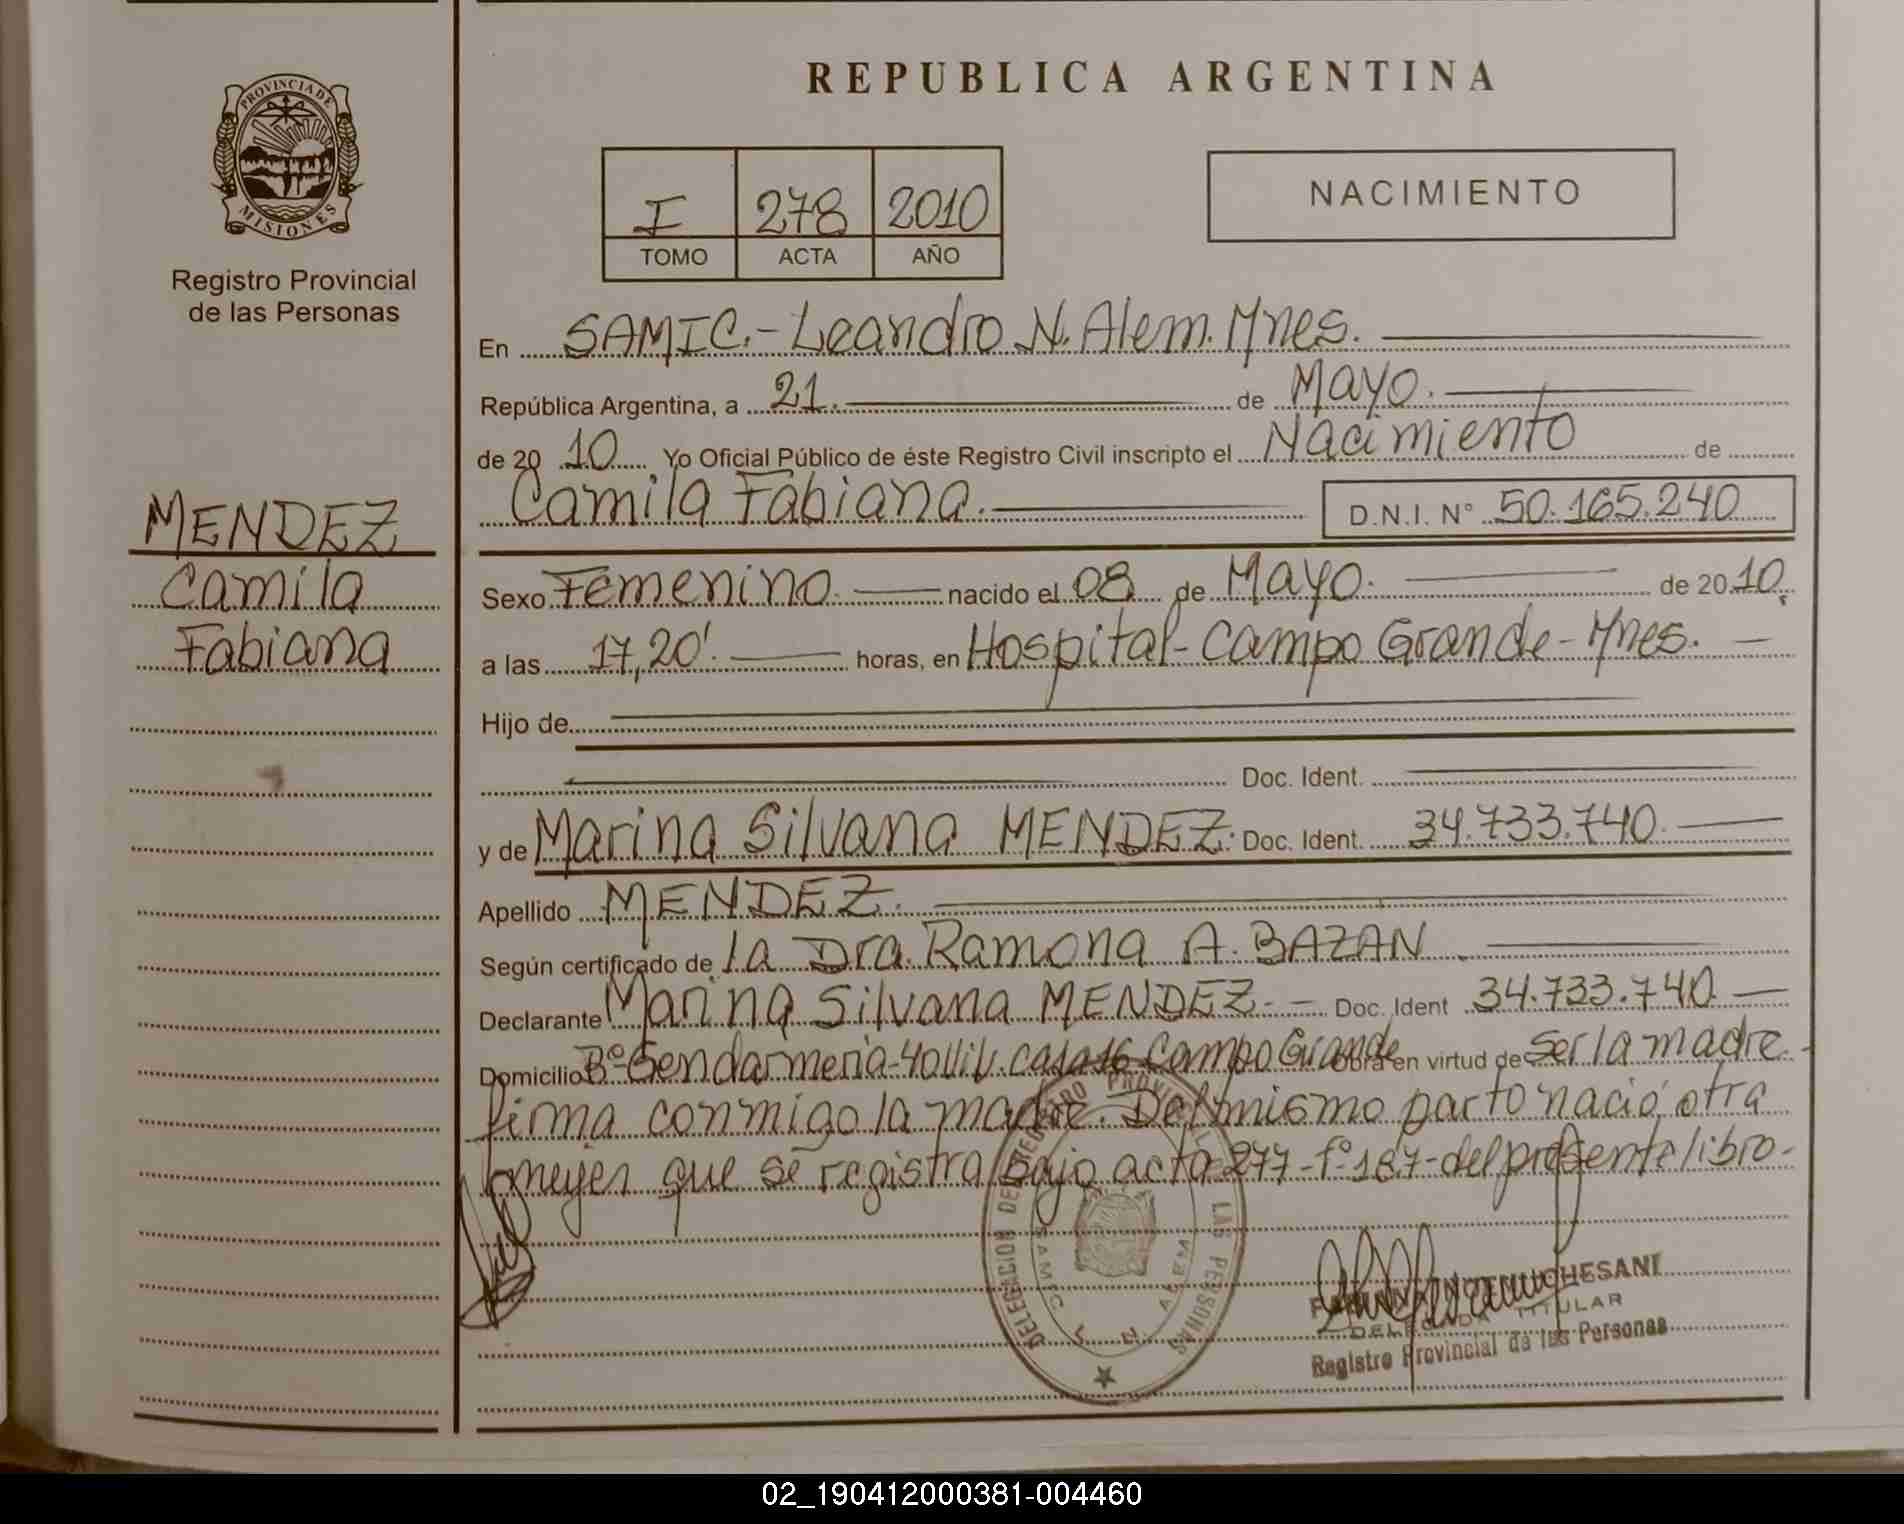 PROVINCIA DE
MISIONES
Registro Provincial
de las Personas
MENDEZ
Camila
Fabiana
REPUBLICA ARGENTINA
I 278 2010
TOMO ACTA AÑO
NACIMIENTO
En SAMIC.- Leandro N. Alem. Mnes.
República Argentina, a 21. de Mayo.
de 20 10 Yo Oficial Público de éste Registro Civil inscripto el Nacimiento de
Camila Fabiana. D.N.I. N° 50.165.240
Sexo Femenino. nacido el 08 de Mayo. de 20 10,
a las 17,20'. horas, en Hospital - Campo Grande - Mnes.
Hijo de
Doc. Ident.
y de Marina Silvana MENDEZ. Doc. Ident. 34.733.740.
Apellido MENDEZ.
Según certificado de la Dra. Ramona A. BAZAN.
Declarante Marina Silvana MENDEZ.- Doc. Ident 34.733.740.
Domicilio B° Gendarmeria-40 Viv. casa 16 Campo Grande obra en virtud de ser la madre.
firma conmigo la madre. Del mismo parto nació otra
que se registra bajo acta 277-f° 187- del presente libro-
DELEGACION DEL REGISTRO PROVINCIAL DE LAS PERSONAS
SAMIC L. N. ALEM
DELEGADA TITULAR
Registro Provincial de las Personas
02_190412000381-004460